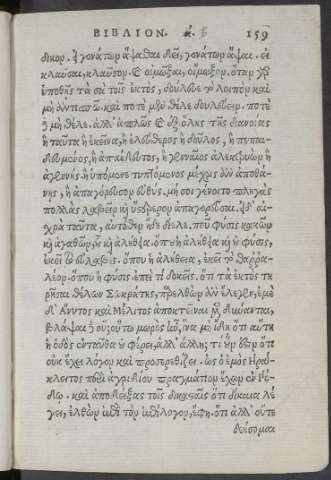 ΒΙΒΛΙΟΝ. ά. 159
δικορ. ἢ γονάτων ἅψασθαι δεῖ, γονάτων ἅψαι. εἰ
κλαῦσαι, κλαῦσον. εἰ οἰμῶξαι, οἴμωξον. ὅταν γὰρ
ὑποθῇς τὰ σὰ τοῖς ἐκτὸς, δούλευε τὸ λοιπὸν καὶ
μὴ ἀντισπῶ. καὶ ποτὲ μὲν θέλε δουλεύειν. ποτὲ
ἢ μὴ θέλε. ἀλλ' ἁπλῶς εἰ ἐξ ὅλης τῆς διανοίας
ἢ ταῦτα ἢ ἐκεῖνα, ἢ ἐλεύθερος ἢ δοῦλος, ἢ πεπαι-
δευμένος, ἢ ἀπαίδευτος, ἢ γενναῖος ἀλεκτρυὼν ἢ
ἀγεννής. ἢ ὑπόμενε τυπτόμενος μέχρις ἂν ἀποθά-
νῃς, ἢ ἀπαγόρευσον εὐθύς. μή σοι γένοιτο πληγὰς
πολλὰς λαβεῖν καὶ ὕστερον ἀπαγορεῦσαι. εἰ δ' αἰ-
χρὰ ταῦτα, αὐτόθεν ἤδη δίελε. ποῦ φύσις κακῶν
καὶ ἀγαθῶν, οὗ καὶ ἀλήθεια. ὅπου ἡ ἀλήθεια καὶ ἡ φύσις,
ἐκεῖ τὸ εὐλαβές. ὅπου ἡ ἀλήθεια, ἐκεῖ τὸ θαρρα-
λέον. ὅπου ἡ φύσις ἐπεί τι δοκεῖς. ὅτι τὰ ἐκτὸς τη
ρῆσαι θέλων Σωκράτης, παρελθὼν ἂν ἔλεγεν, ἐμὲ
δ' Ἄνυτος καὶ Μέλιτος ἀποκτεῖναι μὲν δύνανται,
βλάψαι ἢ οὔ; οὕτω μωρὸς ἦν, ἵνα μὴ ἴδῃ ὅτι αὕτη
ἡ ὁδὸς ἐνταῦθα οὐ φέρει, ἀλλ' ἄλλῃ; τί οὖν ἐστιν ὅτι
οὐκ ἔχει λόγον καὶ προσερεθίζει. ὡς ὁ ἐμὸς Ἡρά-
κλειτος περὶ ἀγριδίου πραγμάτιον ἔχων ἐν Ῥό-
δῳ. καὶ ἀποδείξας τοῖς δικασταῖς ὅτι δίκαια λέ
γει, ἐλθὼν ἐπὶ τὸν ἐπίλογον, ἔφη. ὅτι ἀλλ' οὔτε
δεήσομαι